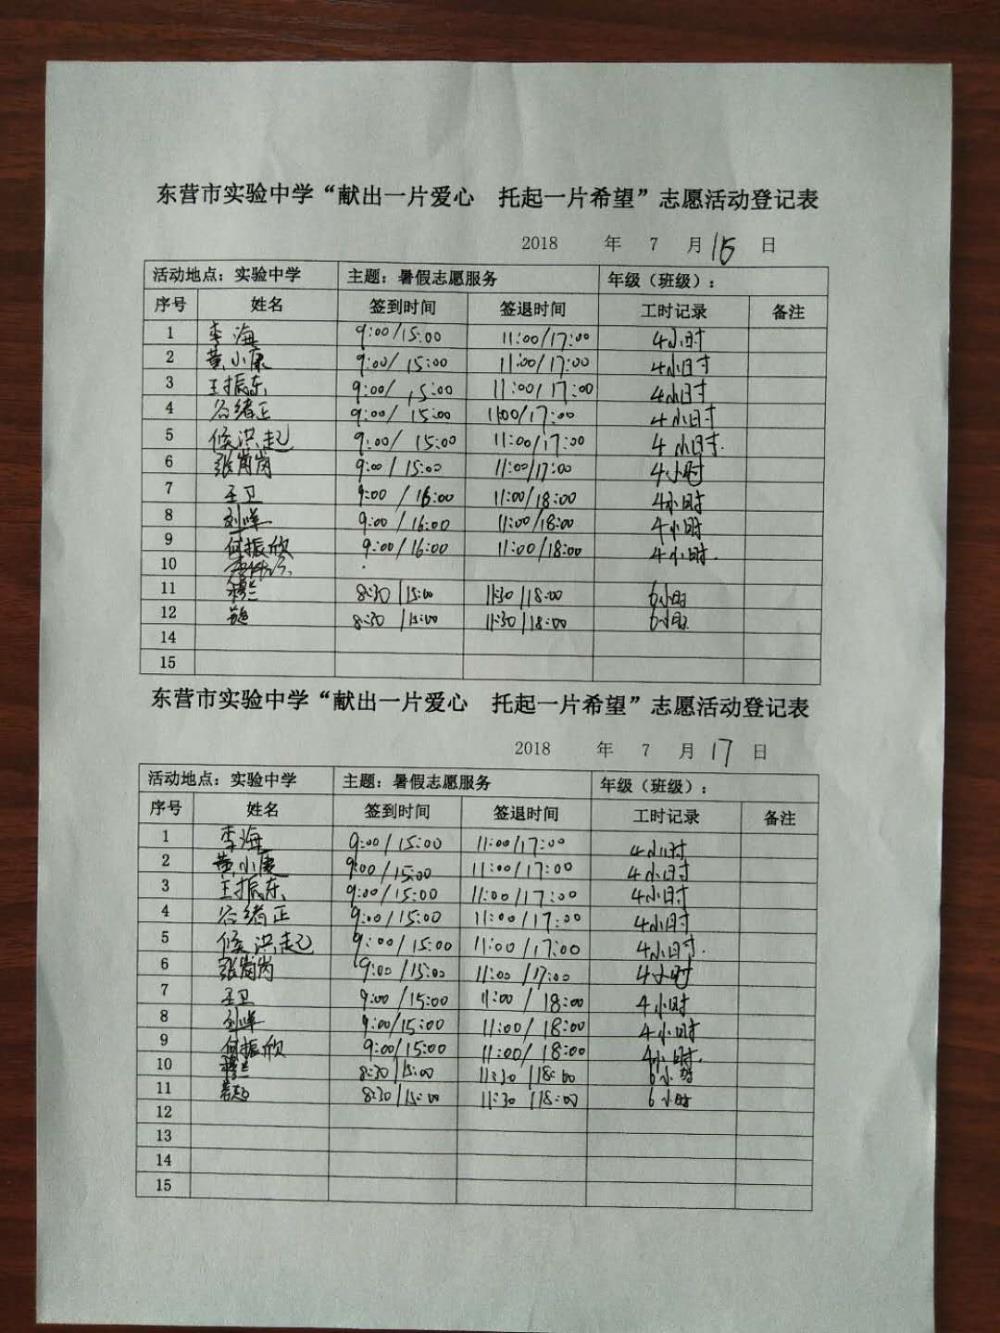 东营市实验中学“献出一片爱心 托起一片希望”志愿活动登记表
2018 年 7 月 15 日
活动地点：实验中学 主题：暑假志愿服务 年级（班级）：
序号 姓名 签到时间 签退时间 工时记录 备注
1 李海 9:00/15:00 11:00/17:00 4小时
2 黄小康 9:00/15:00 11:00/17:00 4小时
3 王振东 9:00/15:00 11:00/17:00 4小时
4 谷绪正 9:00/15:00 11:00/17:00 4小时
5 侯洪起 9:00/15:00 11:00/17:00 4小时.
6 张岗岗 9:00/15:00 11:00/17:00 4小时
7 王卫 9:00/16:00 11:00/18:00 4小时
8 刘峰 9:00/16:00 11:00/18:00 4小时
9 何振欣 9:00/16:00 11:00/18:00 4小时.
10
11 8:30/15:00 11:30/18:00 6小时
12 8:30/15:00 11:30/18:00 6小时
14
15
东营市实验中学“献出一片爱心 托起一片希望”志愿活动登记表
2018 年 7 月 17 日
活动地点：实验中学 主题：暑假志愿服务 年级（班级）：
序号 姓名 签到时间 签退时间 工时记录 备注
1 李海 9:00/15:00 11:00/17:00 4小时
2 黄小康 9:00/15:00 11:00/17:00 4小时
3 王振东 9:00/15:00 11:00/17:00 4小时
4 谷绪正 9:00/15:00 11:00/17:00 4小时
5 侯洪起 9:00/15:00 11:00/17:00 4小时.
6 张岗岗 9:00/15:00 11:00/17:00 4小时
7 王卫 9:00/15:00 11:00/18:00 4小时
8 刘峰 9:00/15:00 11:00/18:00 4小时
9 何振欣 9:00/15:00 11:00/18:00 4小时.
10 8:30/15:00 11:30/18:00 6小时
11 8:30/15:00 11:30/18:00 6小时
12
13
14
15